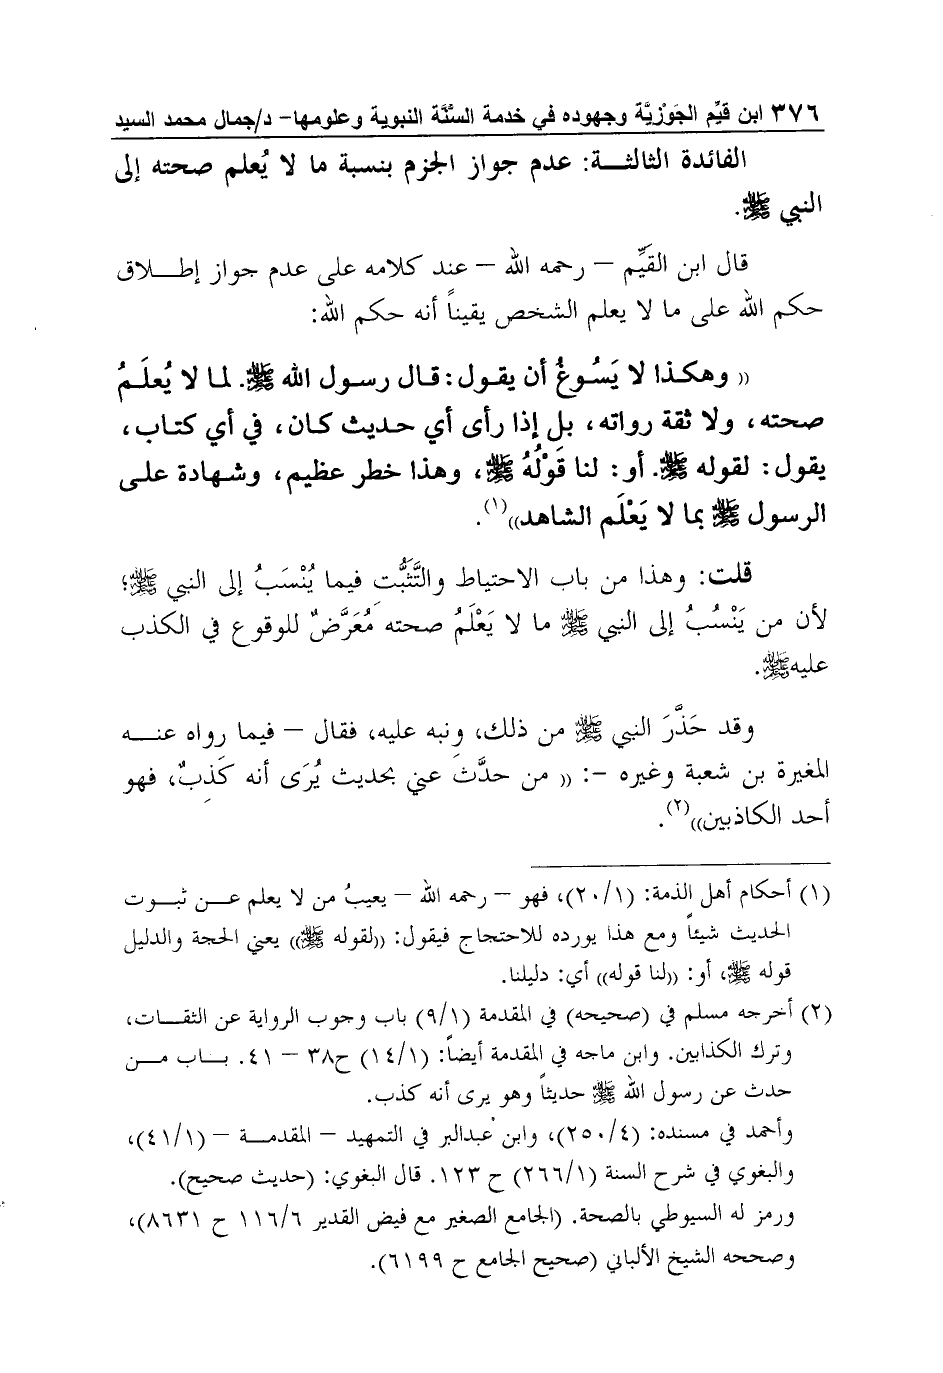 ٣٧٦ ابن قيِّم الجَوْزيَّة وجهوده في خدمة السُّنَّة النبوية وعلومها- د/جمال محمد السيد
الفائدة الثالثـــة: عدم جواز الجزم بنسبة ما لا يُعلم صحته إلى
النبي ﷺ.
قال ابن القيِّم – رحمه الله – عند كلامه على عدم جواز إطـــلاق
حكم الله على ما لا يعلم الشخص يقيناً أنه حكم الله:
(( وهكذا لا يَسُوغُ أن يقول: قال رسول الله ﷺ. لما لا يُعلَـمُ
صحته، ولا ثقة رواته، بل إذا رأى أي حديث كان، في أي كتاب،
يقول: لقوله ﷺ. أو: لنا قَوْلُهُ ﷺ، وهذا خطر عظيم، وشهادة على
الرسول ﷺ بما لا يَعْلَم الشاهد))(١).
قلت: وهذا من باب الاحتياط والتَّثَبُّتِ فيما يُنْسَبُ إلى النبي ﷺ؛
لأن من يَنْسُبُ إلى النبي ﷺ ما لا يَعْلَمُ صحته مُعَرَّضٌ للوقوع في الكذب
عليهﷺ.
وقد حَذَّرَ النبي ﷺ من ذلك، ونبه عليه، فقال – فيما رواه عنـــه
المغيرة بن شعبة وغيره –: (( من حدَّثَ عني بحديث يُرَى أنه كَذِبٌ، فهو
أحد الكاذبين))(٢).
(١) أحكام أهل الذمة: (٢٠/١)، فهو – رحمه الله – يعيبُ من لا يعلم عـــن ثبـوت
الحديث شيئاً ومع هذا يورده للاحتجاج فيقول: ((لقوله ﷺ)) يعني الحجة والدليل
قوله ﷺ، أو: ((لنا قوله)) أي: دليلنا.
(٢) أخرجه مسلم في (صحيحه) في المقدمة (٩/١) باب وجوب الرواية عن الثقـات،
وترك الكذابين. وابن ماجه في المقدمة أيضاً: (١٤/١) ح٣٨ – ٤١. بـــاب مـــن
حدث عن رسول الله ﷺ حديثاً وهو يرى أنه كذب.
وأحمد في مسنده: (٢٥٠/٤)، وابن عبدالبر في التمهيد – المقدمـــة – (٤١/١)،
والبغوي في شرح السنة (٢٦٦/١) ح ١٢٣. قال البغوي: (حديث صحيح).
ورمز له السيوطي بالصحة. (الجامع الصغير مع فيض القدير ١١٦/٦ ح ٨٦٣١)،
وصححه الشيخ الألباني (صحيح الجامع ح ٦١٩٩).